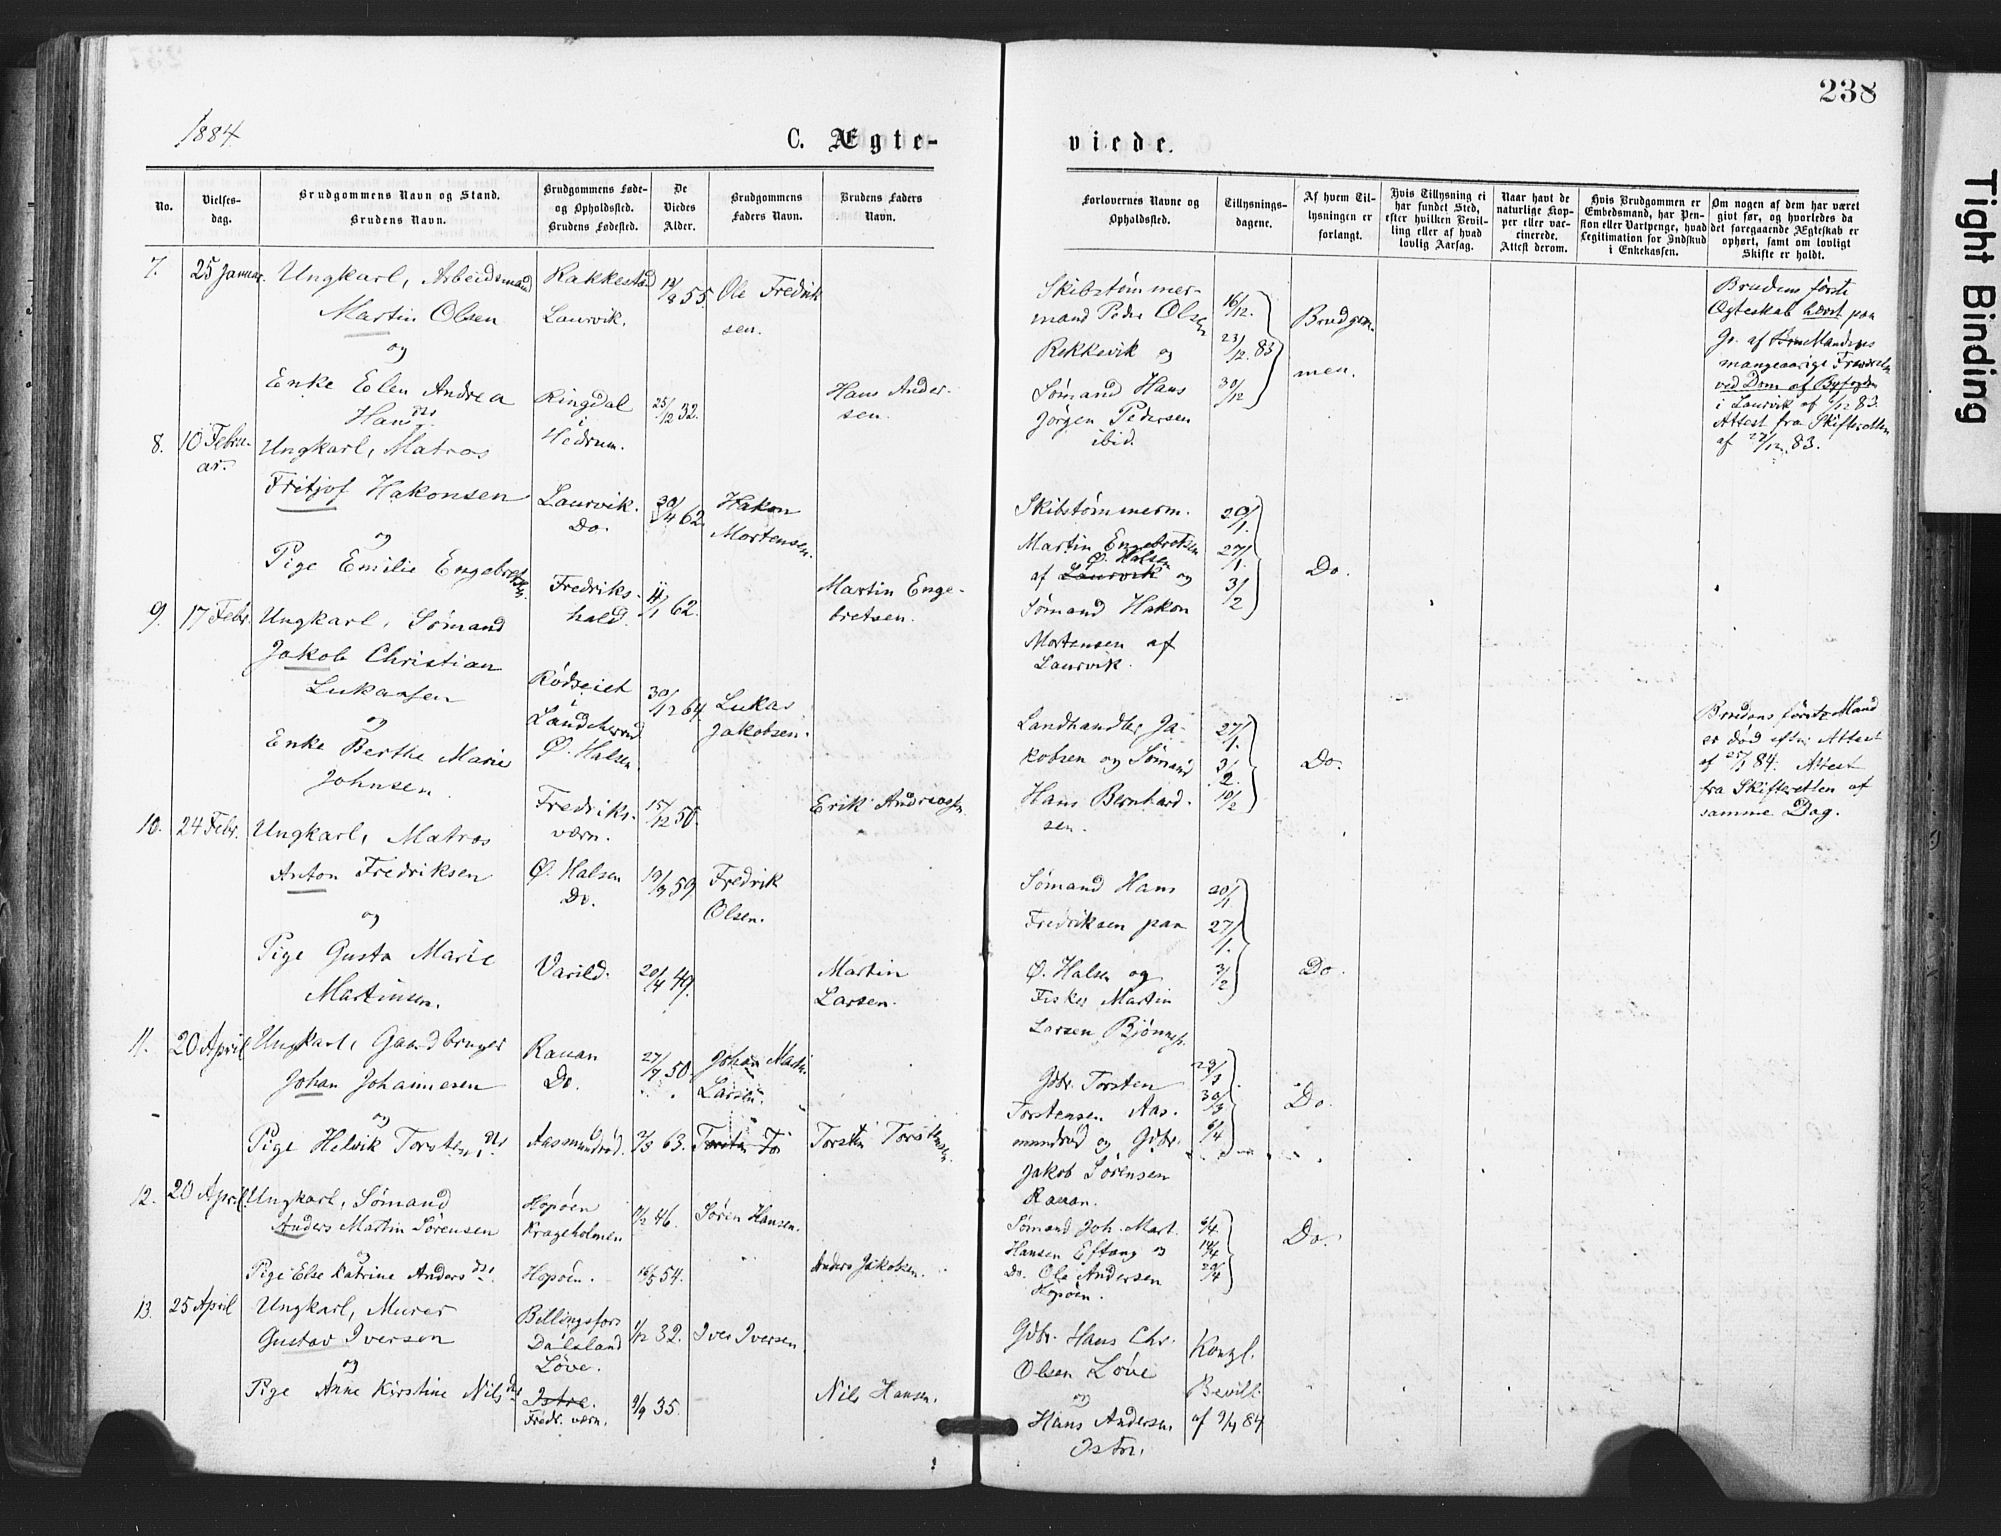 238
1884
C. Ægte-
viede.
No.
Vielses-
dag.
Brudgommens Navn og Stand.
Brudens Navn.
Brudgommens Føde-
og Opholdssted.
Brudens Fødested.
De
Viedes
Alder.
Brudgommens
Faders Navn.
Brudens Faders
Navn.
Forlovernes Navne og
Opholdssted.
Tillysnings-
dagene.
Af hvem Til-
lysningen er
forlangt.
Hvis Tillysning ei
har fundet Sted,
efter hvilken Bevil-
ling eller af hvad
lovlig Aarsag.
Naar havt de
naturlige Kop-
per eller vac-
cinerede.
Attest derom.
Hvis Brudgommen er
Embedsmand, har Pen-
sion eller Vartpenge, hvad
Legitimation for Indskud
i Enkekassen.
Om nogen af dem har været
givt før, og hvorledes da
det foregaaende Ægteskab er
ophørt, samt om lovligt
Skifte er holdt.
7.
25 Januar.
Ungkarl, Arbeidsmand
Martin Olsen
og
Enke Elen Andrea
Hansdtr.
Rakkestad
Laurvik.
Ringdal
i
Hedrum.
55.
25/12 32.
Ole Fredrik
sen.
Hans Ander-
sen.
Skibstømmer-
mand Peder Olsen
Rekkevik og
Sømand Hans
Jørgen Pedersen
ibid.
16/12.
23/12. 83
30/12
Brudgom-
men.
Brudens første
Ægteskab hævet paa
Gr. af Mandens
mangeaarige Fravær
ved Dom af Byfogden
i Laurvik af 83.
Attest fra Skifteretten
af 27/12. 83.
8.
10 Febru-
ar.
Ungkarl, Matros
Fritjof Hakonsen
og
Pige Emilie Engebretsen
Laurvik.
Do.
Fredriks-
hald.
62.
11/1 62.
Hakon
Mortensen.
Martin Enge-
bretsen.
Skibstømmerm.
Martin Engebretsen
Ø. Halsen
af Laurvik og
Sømand Hakon
Mortensen af
Laurvik.
20/1.
27/1.
3/2
Do.
9.
17 Febr.
Ungkarl, Sømand
Jakob Christian
Lukassen
og
Enke Berthe Marie
Johnsen.
Rødseiet
Ø. Halsen
Fredriks-
værn.
30/12 64.
15/12 50.
Lukas
Jakobsen.
Erik Andreassen
Landhandler Ja-
kobsen og Sømand
Hans Bernhard-
sen.
27/1.
3/2.
10/2
Do.
Brudens første Mand
er død efter Attest
af 84. Attest
fra Skifteretten af
samme Dag.
10.
24 Febr.
Ungkarl, Matros
Anton Fredriksen
og
Pige Gusta Marie
Martinsen.
Ø. Halsen
Do.
Varild.
59.
20/4 49.
Fredrik
Olsen.
Martin
Larsen.
Sømand Hans
Fredriksen paa
Ø. Halsen og
Fisker Martin
Larsen
20/1.
27/1.
3/2
Do.
11.
20 April
Ungkarl, Gaardbruger
Johan Johannesen
og
Pige Helvik Torstensdtr.
Rauan
Do.
Aasmundrød.
27/7 50.
3/3 63.
Johan Martin
Larsen.
Torsten To
Torsten Torstensen
Gdbr. Torsten
Torstensen Aas-
mundrød og Gdbr.
Jakob Sørensen
Rauan.
23/3
30/3
6/4
Do.
12.
20 April.
Ungkarl, Sømand
Anders Martin Sørensen
og
Pige Else Katrine Andersdtr.
Hopøen
Krageholmen
Hopøen.
46.
16/5 54.
Søren Hansen.
Anders Jakobsen.
Sømand Joh. Mart.
Hansen Eftang og
Do. Ole Andersen
Hopøen.
6/4.
14/4
20/4
Do.
13.
25 April
Ungkarl, Murer
Gustav Iversen
og
Pige Anne Kirstine Nilsdtr
Billingsfors
Dalsland
Løve.
Istre.
Fredr. værn.
1/12 32.
9/9 35.
Iver Iversen.
Nils Hansen.
Gdbr. Hans Chr.
Olsen Løve
og
Hans Andersen
Istre.
Kongl.
Bevill.
af 9/4 84
Tight Binding